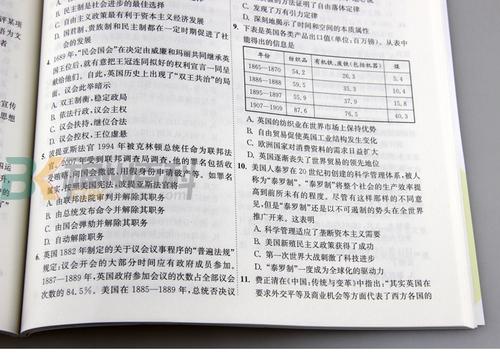 进社会进步的最佳选择
C. 自由主义政策最有利于资本主义经济发展
D. 自由制、贵族制和民主制都在一定时期促进了社会的发展
4. 1689年,“民会”在决定由威廉和玛丽共同继承英
国王位后,就有意把王冠连同拟好的权利宣言一同呈
献给他们。自此,英国历史上出现了“双王共治”的局
面,议会此举暗示
A. 双王制衡,稳定政局
B. 依法行政,议会主权
C. 议会扶持,继位合法
D. 议会控权,王位虚悬
5. 波提亚斯法官 1994 年被克林顿总统任命为联邦法
官
实,按照美国宪法,波提亚斯法官将
A. 由联邦法院审判并解除其职务
B. 由总统发布命令并解除其职务
C. 由国会弹劾并解除其职务
D. 自动解除职务
6. 英国 1882 年制定的关于议会议事程序的“普遍法规”
规定:议会开会的大部分时间应有政府成员参加。
1887—1889 年,英国政府参加会议的次数占全部议会
次数的 84.5%。美国在 1885—1889 年,总统否决议
C. 发现了万有引力定律
D. 深刻地揭示了时间和空间的本质属性
9. 下表是英国各类产品出口值(单位:百万镑)。从表中
能得出的信息是
年份 纺织品 煤
1865—1870 54.2 26.3 5.4
1885—1889 59.5 36.3 10.3
1895—1899 55.9 37.9 15.8
1907—1909 87.6 76.5 40.4
A. 英国的纺织业在世界市场上保持优势
B. 自由贸易促使英国工业结构发生变化
C. 欧洲国家对消费资料的需求日益扩大
D. 英国逐渐丧失了世界贸易的领先地位
10. 美国人泰罗在 20 世纪初创建的科学管理体系,被人
称为“泰罗制”。“泰罗制”将整个社会的生产效率提
高到前所未有的程度。尽管有这样那样的不同意
见,但是“泰罗制”还是以不可遏制的势头在全世界
推广开来。这表明
A. 科学管理适应了垄断资本主义需要
B. 美国新殖民主义政策获得了成功
C. 第一次世界大战刺激了科技进步
D. “泰罗制”一度成为全球化的驱动力
11. 费正清在《中国:传统与变革》中指出:“其实英国在
要求外交平等及商业机会等方面代表了西方各国的